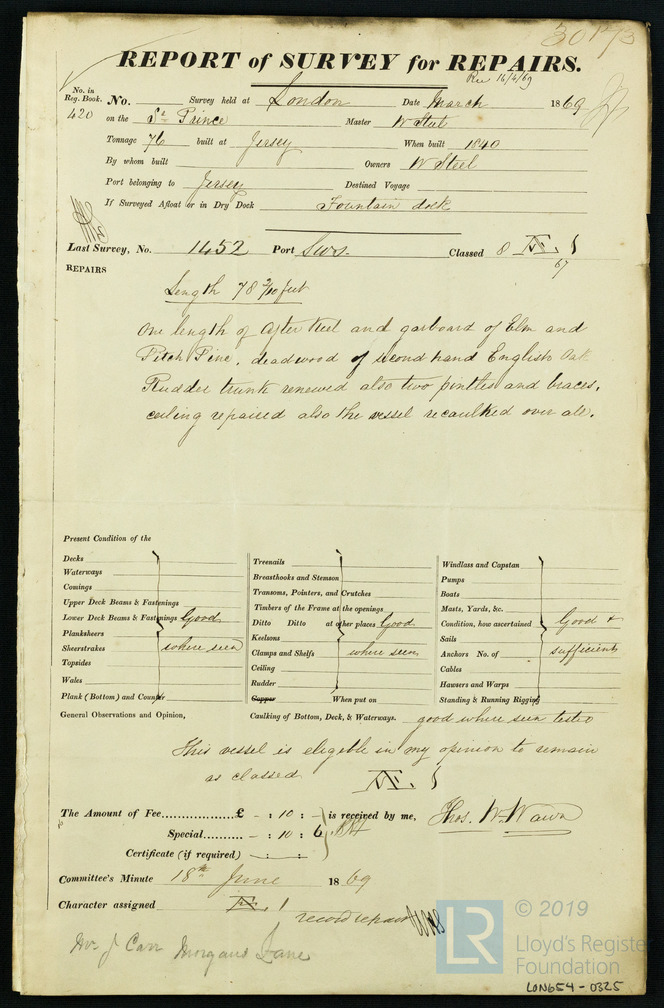 30173
REPORT of SURVEY for REPAIRS.
Rec 16/4/69
No. in Reg. Book. No. Survey held at London Date March 1869
420 on the St Prince Master W Steel
Tonnage 76 built at Jersey When built 1840
By whom built Owners W Steel
Port belonging to Jersey Destined Voyage
If Surveyed Afloat or in Dry Dock Fountain dock
Last Survey, No. 1452 Port Sws. Classed 8 Æ. 1
67
REPAIRS
Length 78 2/10 feet
One length of After Keel and garboard of Elm and
Pitch Pine, deadwood of second hand English Oak
Rudder trunk renewed also two pintles and braces,
ceiling repaired also the vessel recaulked over all.
Present Condition of the
Decks
Waterways
Comings
Upper Deck Beams & Fastenings
Lower Deck Beams & Fastenings Good
Planksheers
Sheerstrakes where seen
Topsides
Wales
Plank (Bottom) and Counter
Treenails
Breasthooks and Stemson
Transoms, Pointers, and Crutches
Timbers of the Frame at the openings
Ditto Ditto at other places Good
Keelsons
Clamps and Shelfs where seen
Ceiling
Rudder
Copper When put on
Windlass and Capstan
Pumps
Boats
Masts, Yards, &c.
Condition, how ascertained Good &
Sails
Anchors No. of sufficient
Cables
Hawsers and Warps
Standing & Running Rigging
General Observations and Opinion, Caulking of Bottom, Deck, & Waterways. good where seen tested
This vessel is eligible in my opinion to remain
as classed Æ. 1
The Amount of Fee £ - : 10 : - is received by me, Thos. W. Wawn
Special - : 10 : 6
Certificate (if required) - : - :
Committee's Minute 18th June 1869
Character assigned Æ. 1
record repairs
Mr J Carr Morgans Lane
LR © 2019
Lloyd's Register
Foundation
LON654-0325